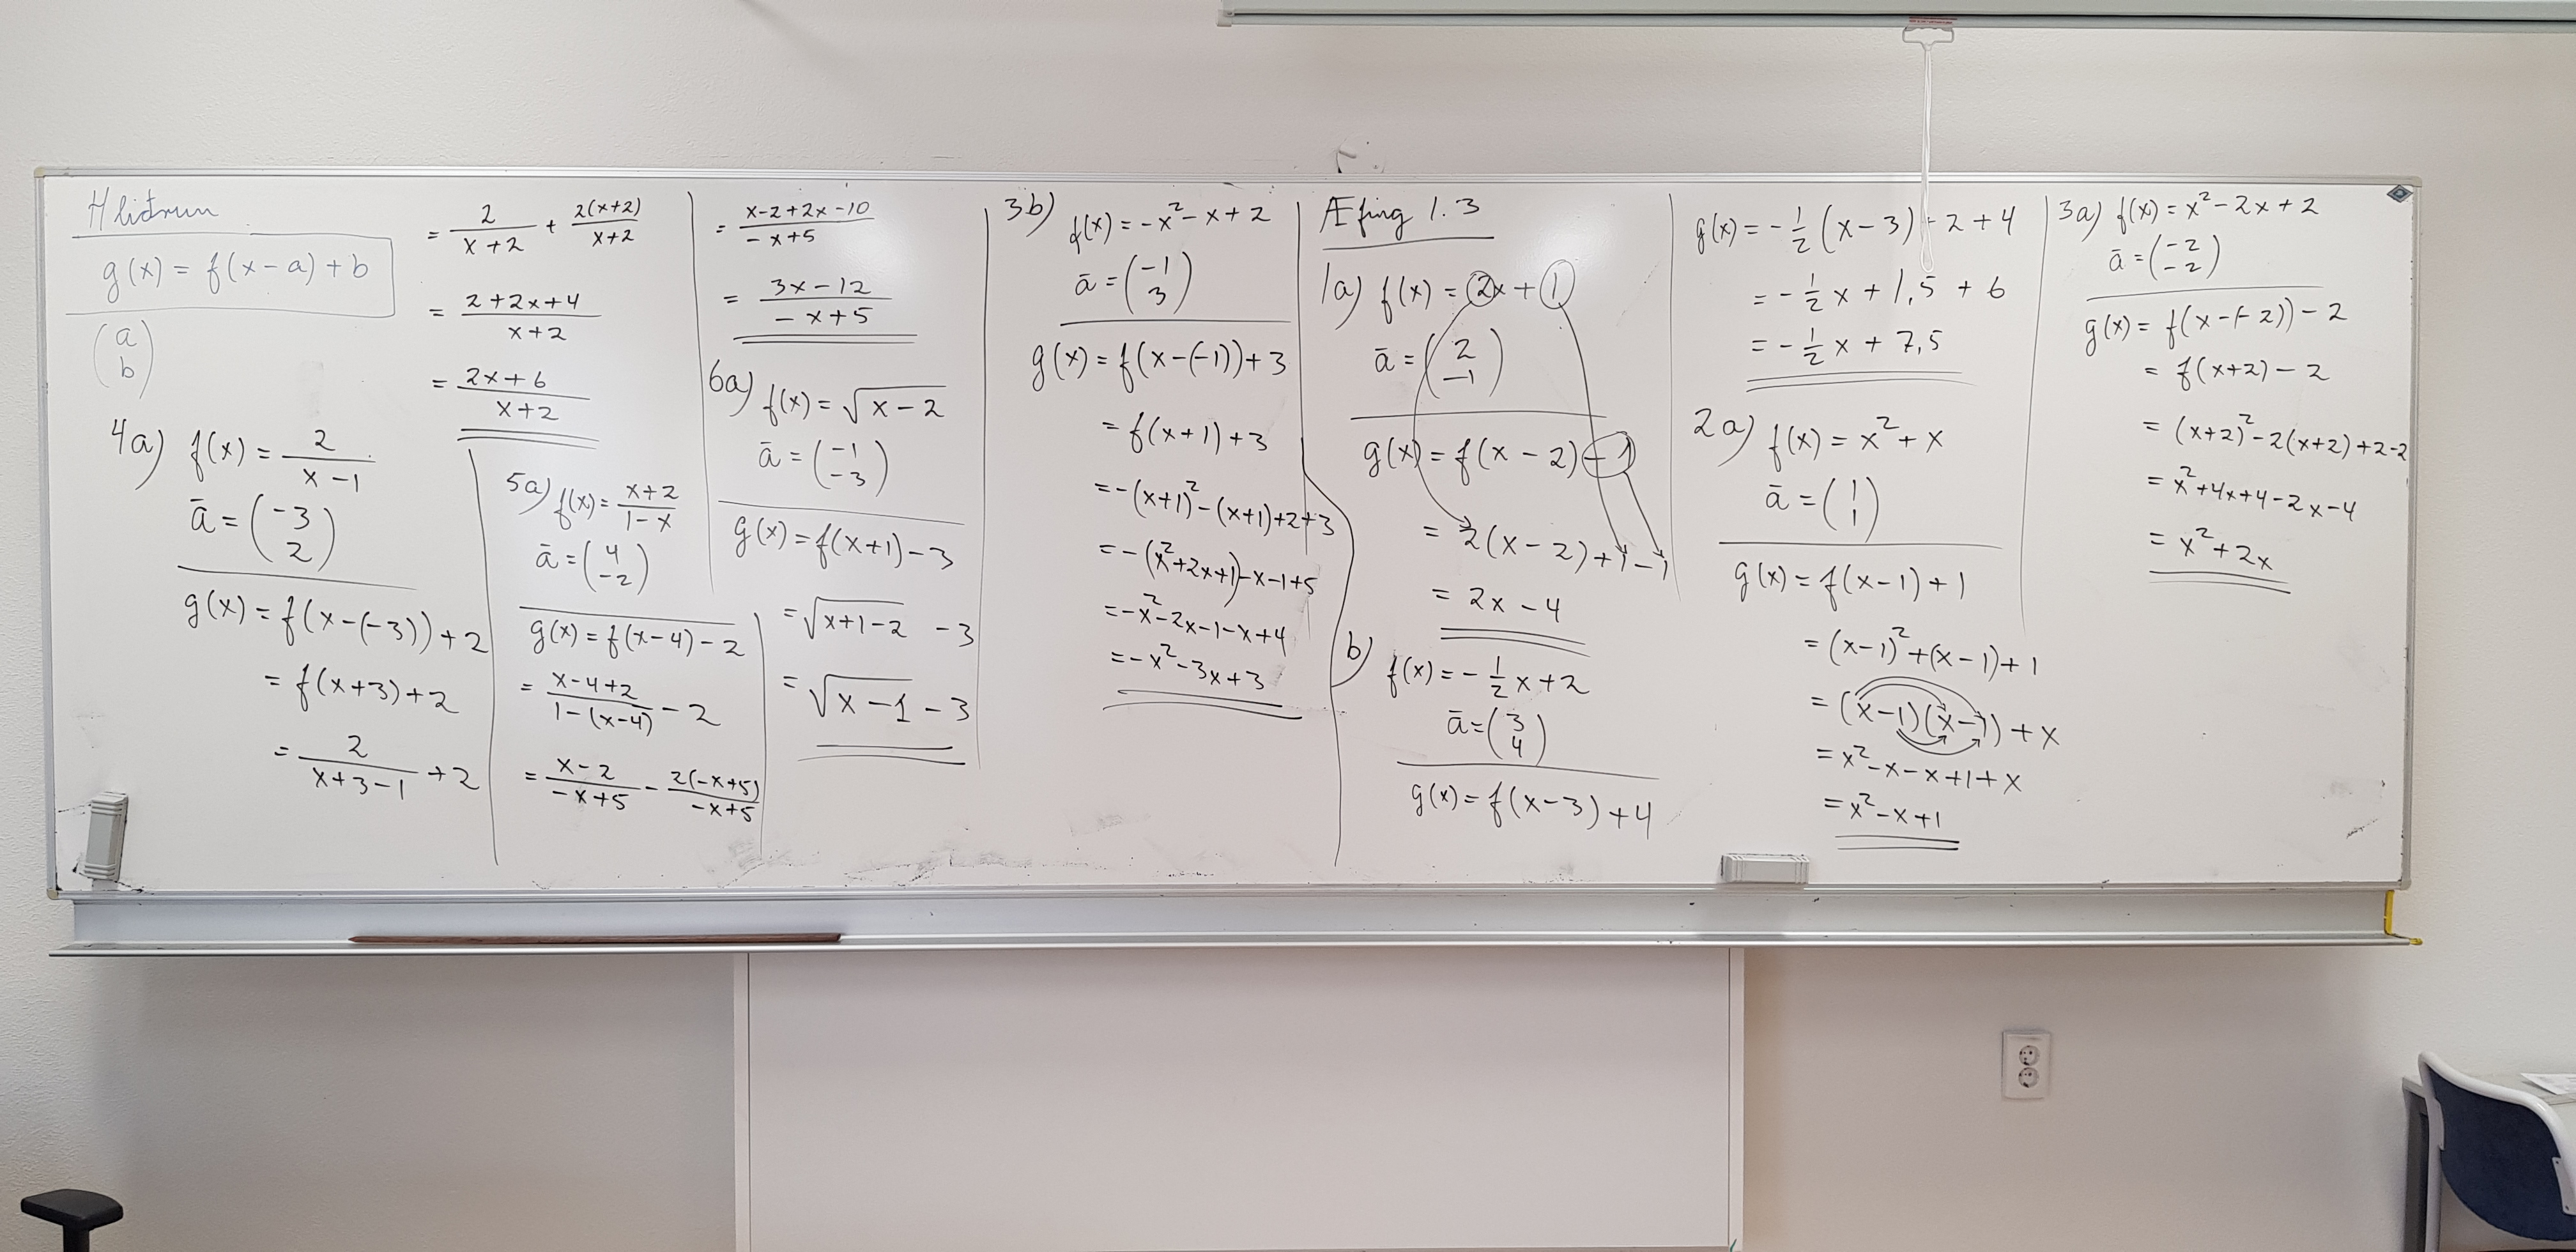 Hliðrun
g(x) = f(x-a) + b
(a
b)
4a) f(x) = 2/(x-1)
ā = (-3
2)
g(x) = f(x-(-3)) + 2
= f(x+3) + 2
= 2/(x+3-1) + 2
= 2/(x+2) + 2(x+2)/(x+2)
= (2+2x+4)/(x+2)
= (2x+6)/(x+2)
5a) f(x) = (x+2)/(1-x)
ā = (4
-2)
g(x) = f(x-4) - 2
= (x-4+2)/(1-(x-4)) - 2
= (x-2)/(-x+5) - 2(-x+5)/(-x+5)
= (x-2+2x-10)/(-x+5)
= (3x-12)/(-x+5)
6a) f(x) = √(x-2)
ā = (-1
-3)
g(x) = f(x+1) - 3
= √(x+1-2) - 3
= √(x-1) - 3
3b) f(x) = -x² - x + 2
ā = (-1
3)
g(x) = f(x-(-1)) + 3
= f(x+1) + 3
= -(x+1)² - (x+1) + 2 + 3
= -(x²+2x+1) - x - 1 + 5
= -x² - 2x - 1 - x + 4
= -x² - 3x + 3
Æfing 1.3
1a) f(x) = 2x + 1
ā = (2
-1)
g(x) = f(x-2) - 1
= 2(x-2) + 1 - 1
= 2x - 4
b) f(x) = -1/2 x + 2
ā = (3
4)
g(x) = f(x-3) + 4
g(x) = -1/2 (x-3) + 2 + 4
= -1/2 x + 1,5 + 6
= -1/2 x + 7,5
2a) f(x) = x² + x
ā = (1
1)
g(x) = f(x-1) + 1
= (x-1)² + (x-1) + 1
= (x-1)(x-1) + x
= x² - x - x + 1 + x
= x² - x + 1
3a) f(x) = x² - 2x + 2
ā = (-2
-2)
g(x) = f(x-(-2)) - 2
= f(x+2) - 2
= (x+2)² - 2(x+2) + 2 - 2
= x² + 4x + 4 - 2x - 4
= x² + 2x